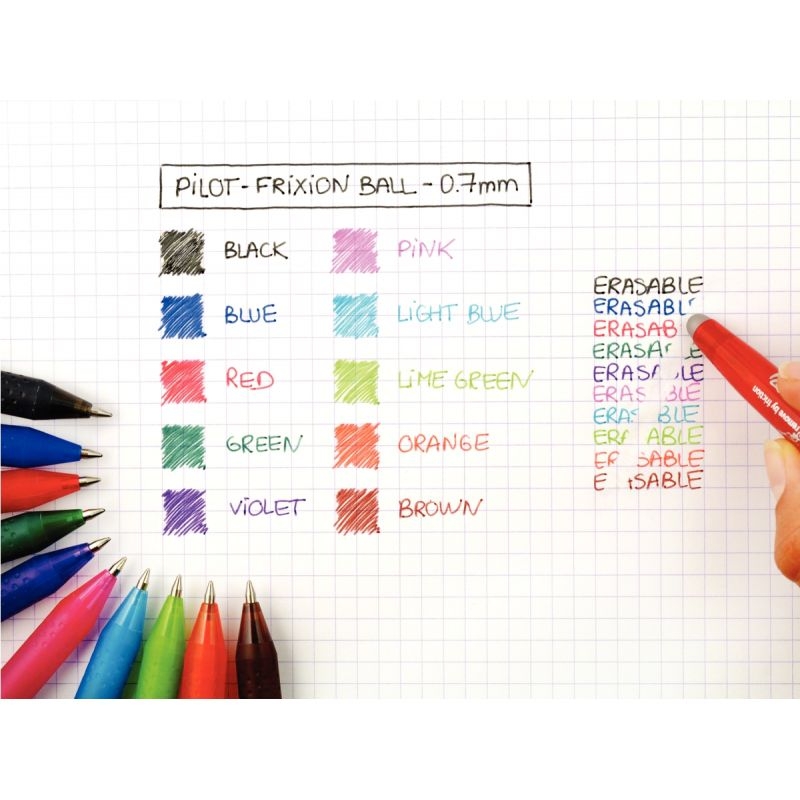 PILOT-FRIXION BALL - 0.7mm
BLACK
BLUE
RED
GREEN
VIOLET
PINK
LIGHT BLUE
LIME GREEN
ORANGE
BROWN
ERASABLE
ERASABL
ERASAB
ERASA
ERASA LE
ERAS BLE
ERAS BLE
ER ABLE
ER SABLE
E SABLE
remove by friction